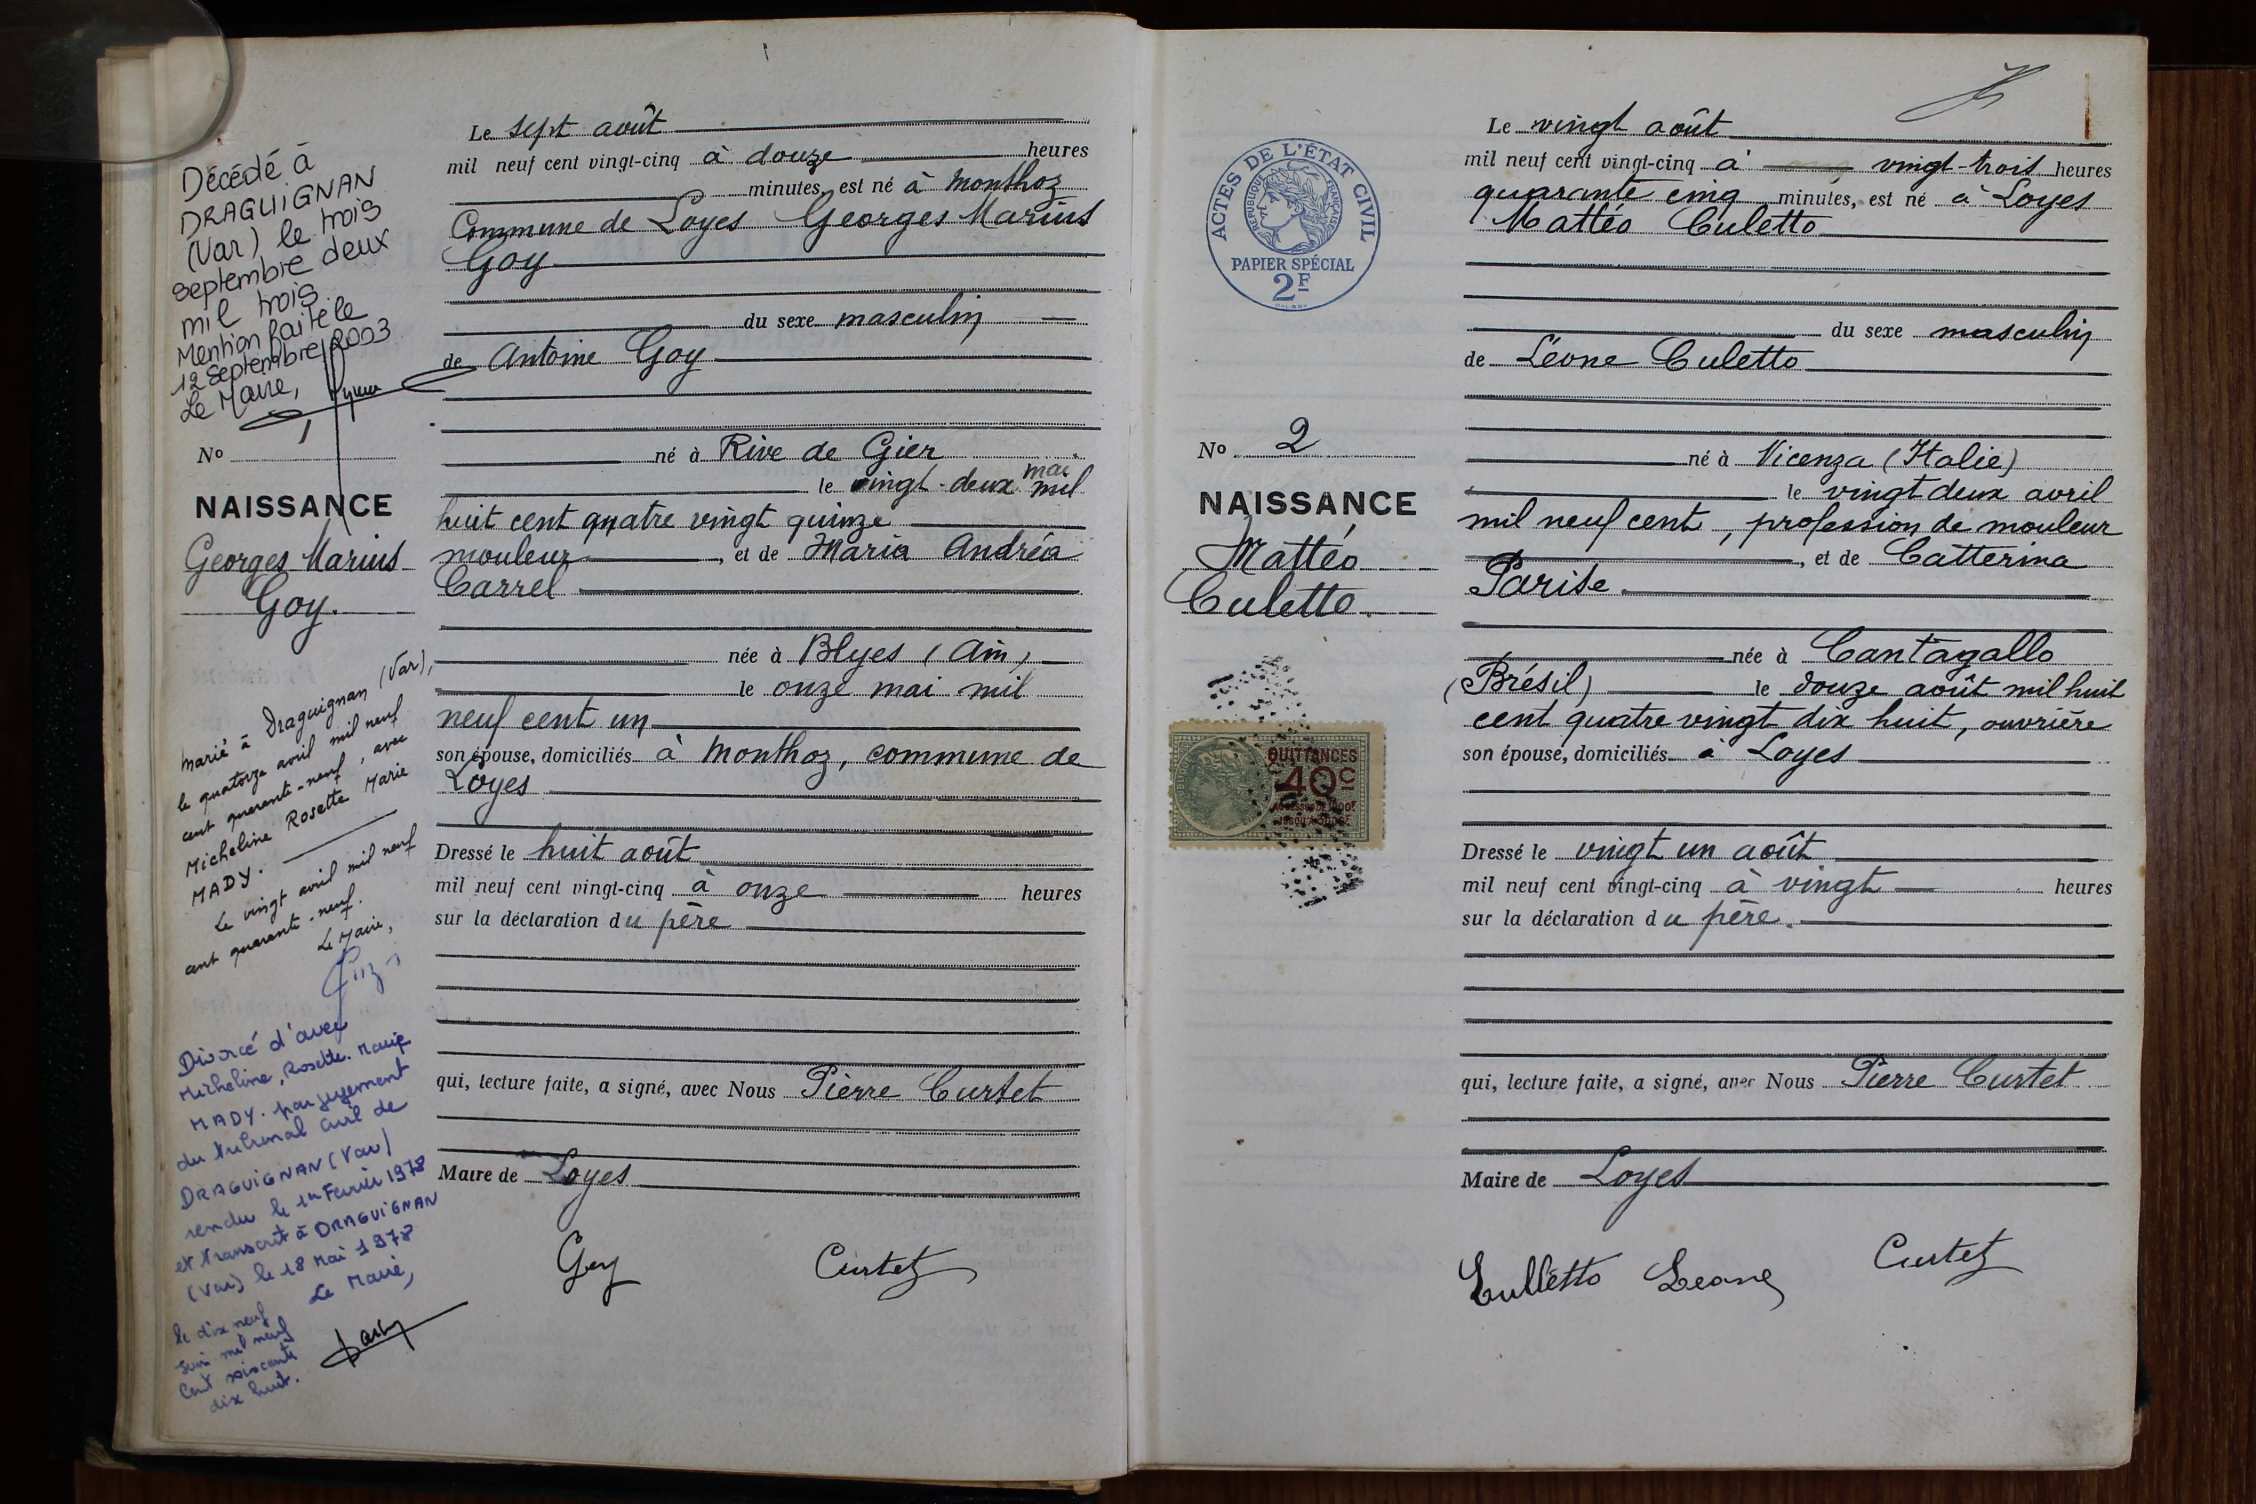 Décédé à
DRAGUIGNAN
(Var) le trois
septembre deux
mil trois
Mention faite le
12 Septembre 2003
Le Maire,
No
NAISSANCE
Georges Marius
Goy.
Marié à Draguignan (Var),
le quatorze avril mil neuf
cent quarante-neuf, avec
Micheline Rosette Marie
MADY.
Le vingt avril mil neuf
cent quarante-neuf.
Le Maire,
Divorcé d'avec
Micheline, Rosette. Marie
MADY. par jugement
du tribunal civil de
DRAGUIGNAN (Var)
rendu le 1er Février 1978
et transcrit à DRAGUIGNAN
(Var) le 18 Mai 1978
Le Maire,
le dix neuf
juin mil neuf
cent soixante
dix huit.
Le sept août
mil neuf cent vingt-cinq à douze heures
minutes, est né à Monthoz
Commune de Loyes Georges Marius
Goy
du sexe masculin
de Antoine Goy
né à Rive de Gier
mai
le vingt-deux mil
huit cent quatre vingt quinze
mouleur, et de Maria Andréa
Carrel
née à Blyes (Ain)
le onze mai mil
neuf cent un
son épouse, domiciliés à Monthoz, commune de
Loyes
Dressé le huit août
mil neuf cent vingt-cinq à onze heures
sur la déclaration du père
qui, lecture faite, a signé, avec Nous Pierre Curtet
Maire de Loyes
Goy Curtet
ACTES DE L'ÉTAT CIVIL
RÉPUBLIQUE FRANÇAISE
PAPIER SPÉCIAL
2F
No 2
NAISSANCE
Mattéo
Culetto
QUITTANCES
40c
Le vingt août
mil neuf cent vingt-cinq à vingt-trois heures
quarante cinq minutes, est né à Loyes
Mattéo Culetto
du sexe masculin
de Léone Culetto
né à Vicenza (Italie)
le vingt deux avril
mil neuf cent, profession de mouleur
, et de Catterina
Parise.
née à Cantagallo
(Brésil) le douze août mil huit
cent quatre vingt dix huit, ouvrière
son épouse, domiciliés à Loyes
Dressé le vingt un août
mil neuf cent vingt-cinq à vingt heures
sur la déclaration du père.
qui, lecture faite, a signé, avec Nous Pierre Curtet
Maire de Loyes
Culletto Leone Curtet